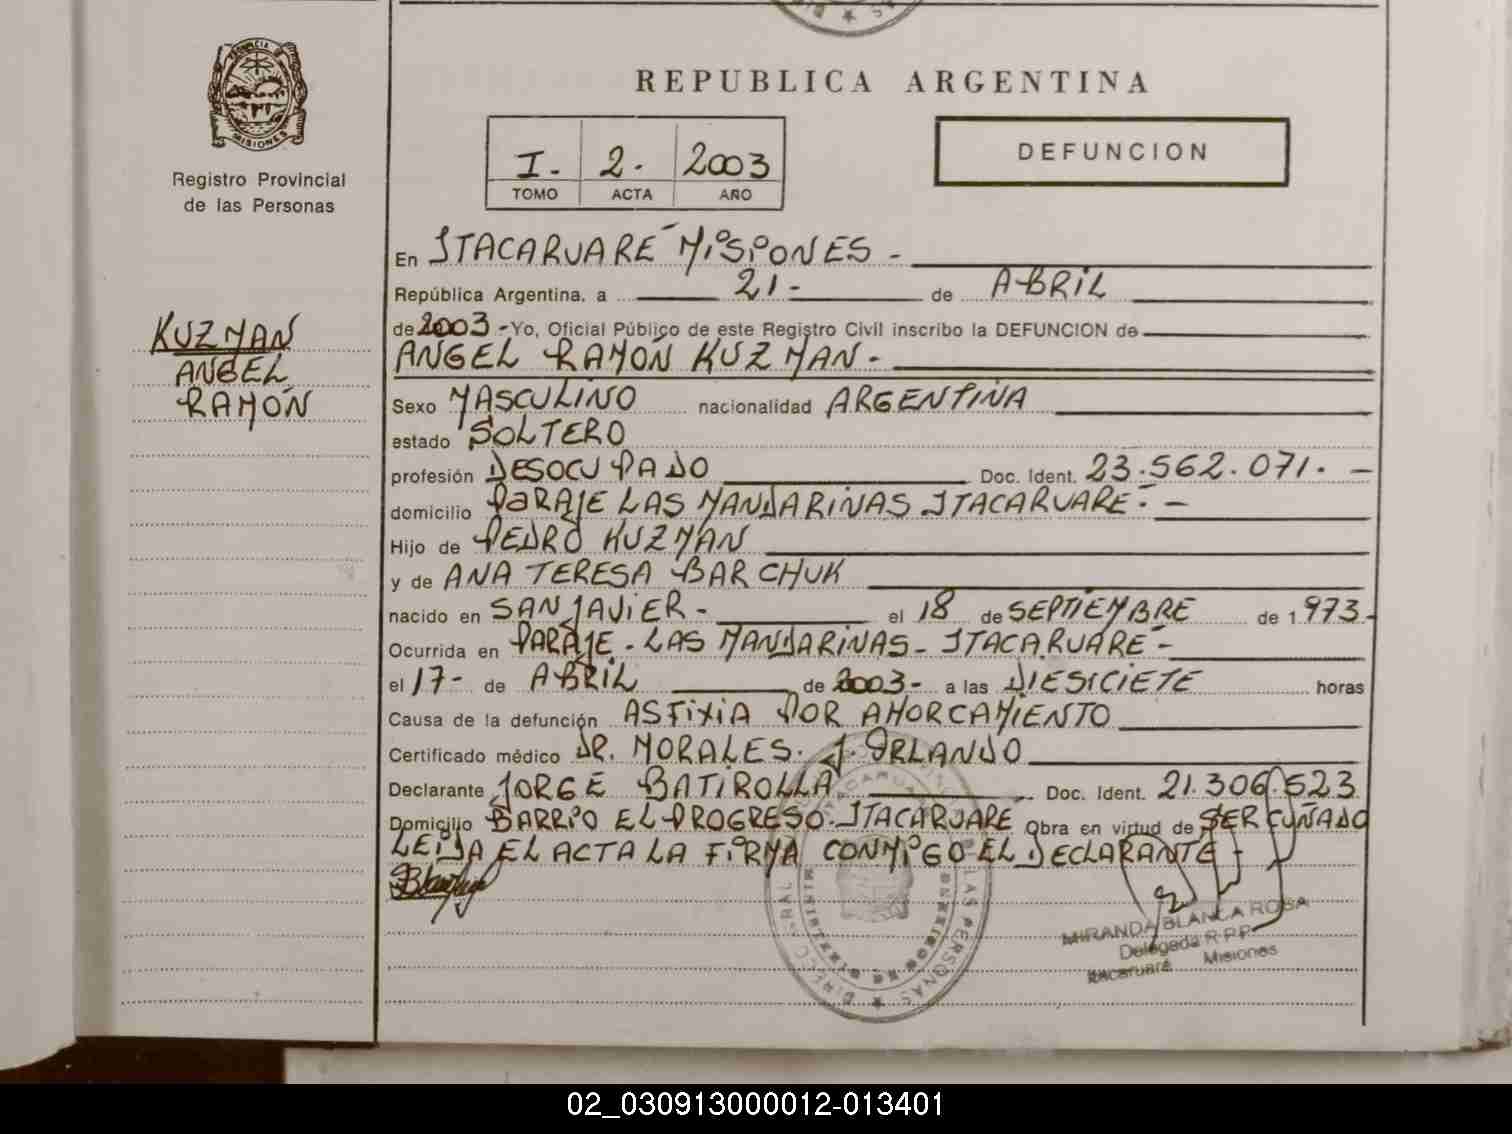 PROVINCIA DE
MISIONES
Registro Provincial
de las Personas
KUZMAN
ANGEL
RAMÓN
REPUBLICA ARGENTINA
I. 2. 2003
TOMO ACTA AÑO
DEFUNCION
En ITACARUARÉ MISIONES -
República Argentina, a 21- de ABRIL
de 2003 - Yo, Oficial Público de este Registro Civil inscribo la DEFUNCION de
ANGEL RAMÓN KUZMAN -
Sexo MASCULINO nacionalidad ARGENTINA
estado SOLTERO
profesión DESOCUPADO Doc. Ident. 23.562.071. -
domicilio PARAJE LAS MANDARINAS ITACARUARÉ - -
Hijo de PEDRO KUZMAN
y de ANA TERESA BARCHUK
nacido en SAN JAVIER - el 18 de SEPTIEMBRE de 1973-
Ocurrida en PARAJE - LAS MANDARINAS - ITACARUARÉ -
el 17- de ABRIL de 2003- a las DIESICIETE horas
Causa de la defunción ASFIXIA POR AHORCAMIENTO
Certificado médico DR. MORALES. J. ORLANDO
Declarante JORGE BATIROLLA Doc. Ident. 21.306.523
Domicilio BARRIO EL PROGRESO. ITACARUARE Obra en virtud de SER CUÑADO
LEIDA EL ACTA LA FIRMA CONMIGO EL DECLARANTE -
MIRANDA BLANCA ROSA
Delegada R.P.P.
Itacaruaré Misiones
02_030913000012-013401